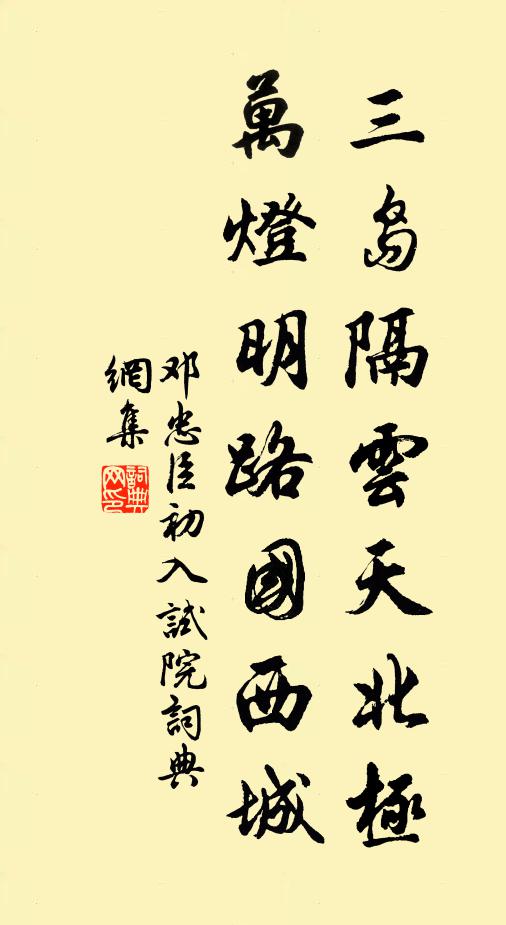 三岛隔雲天北極
萬燈明路國西城
邓忠臣初入試院詞典
網集
詞典网印